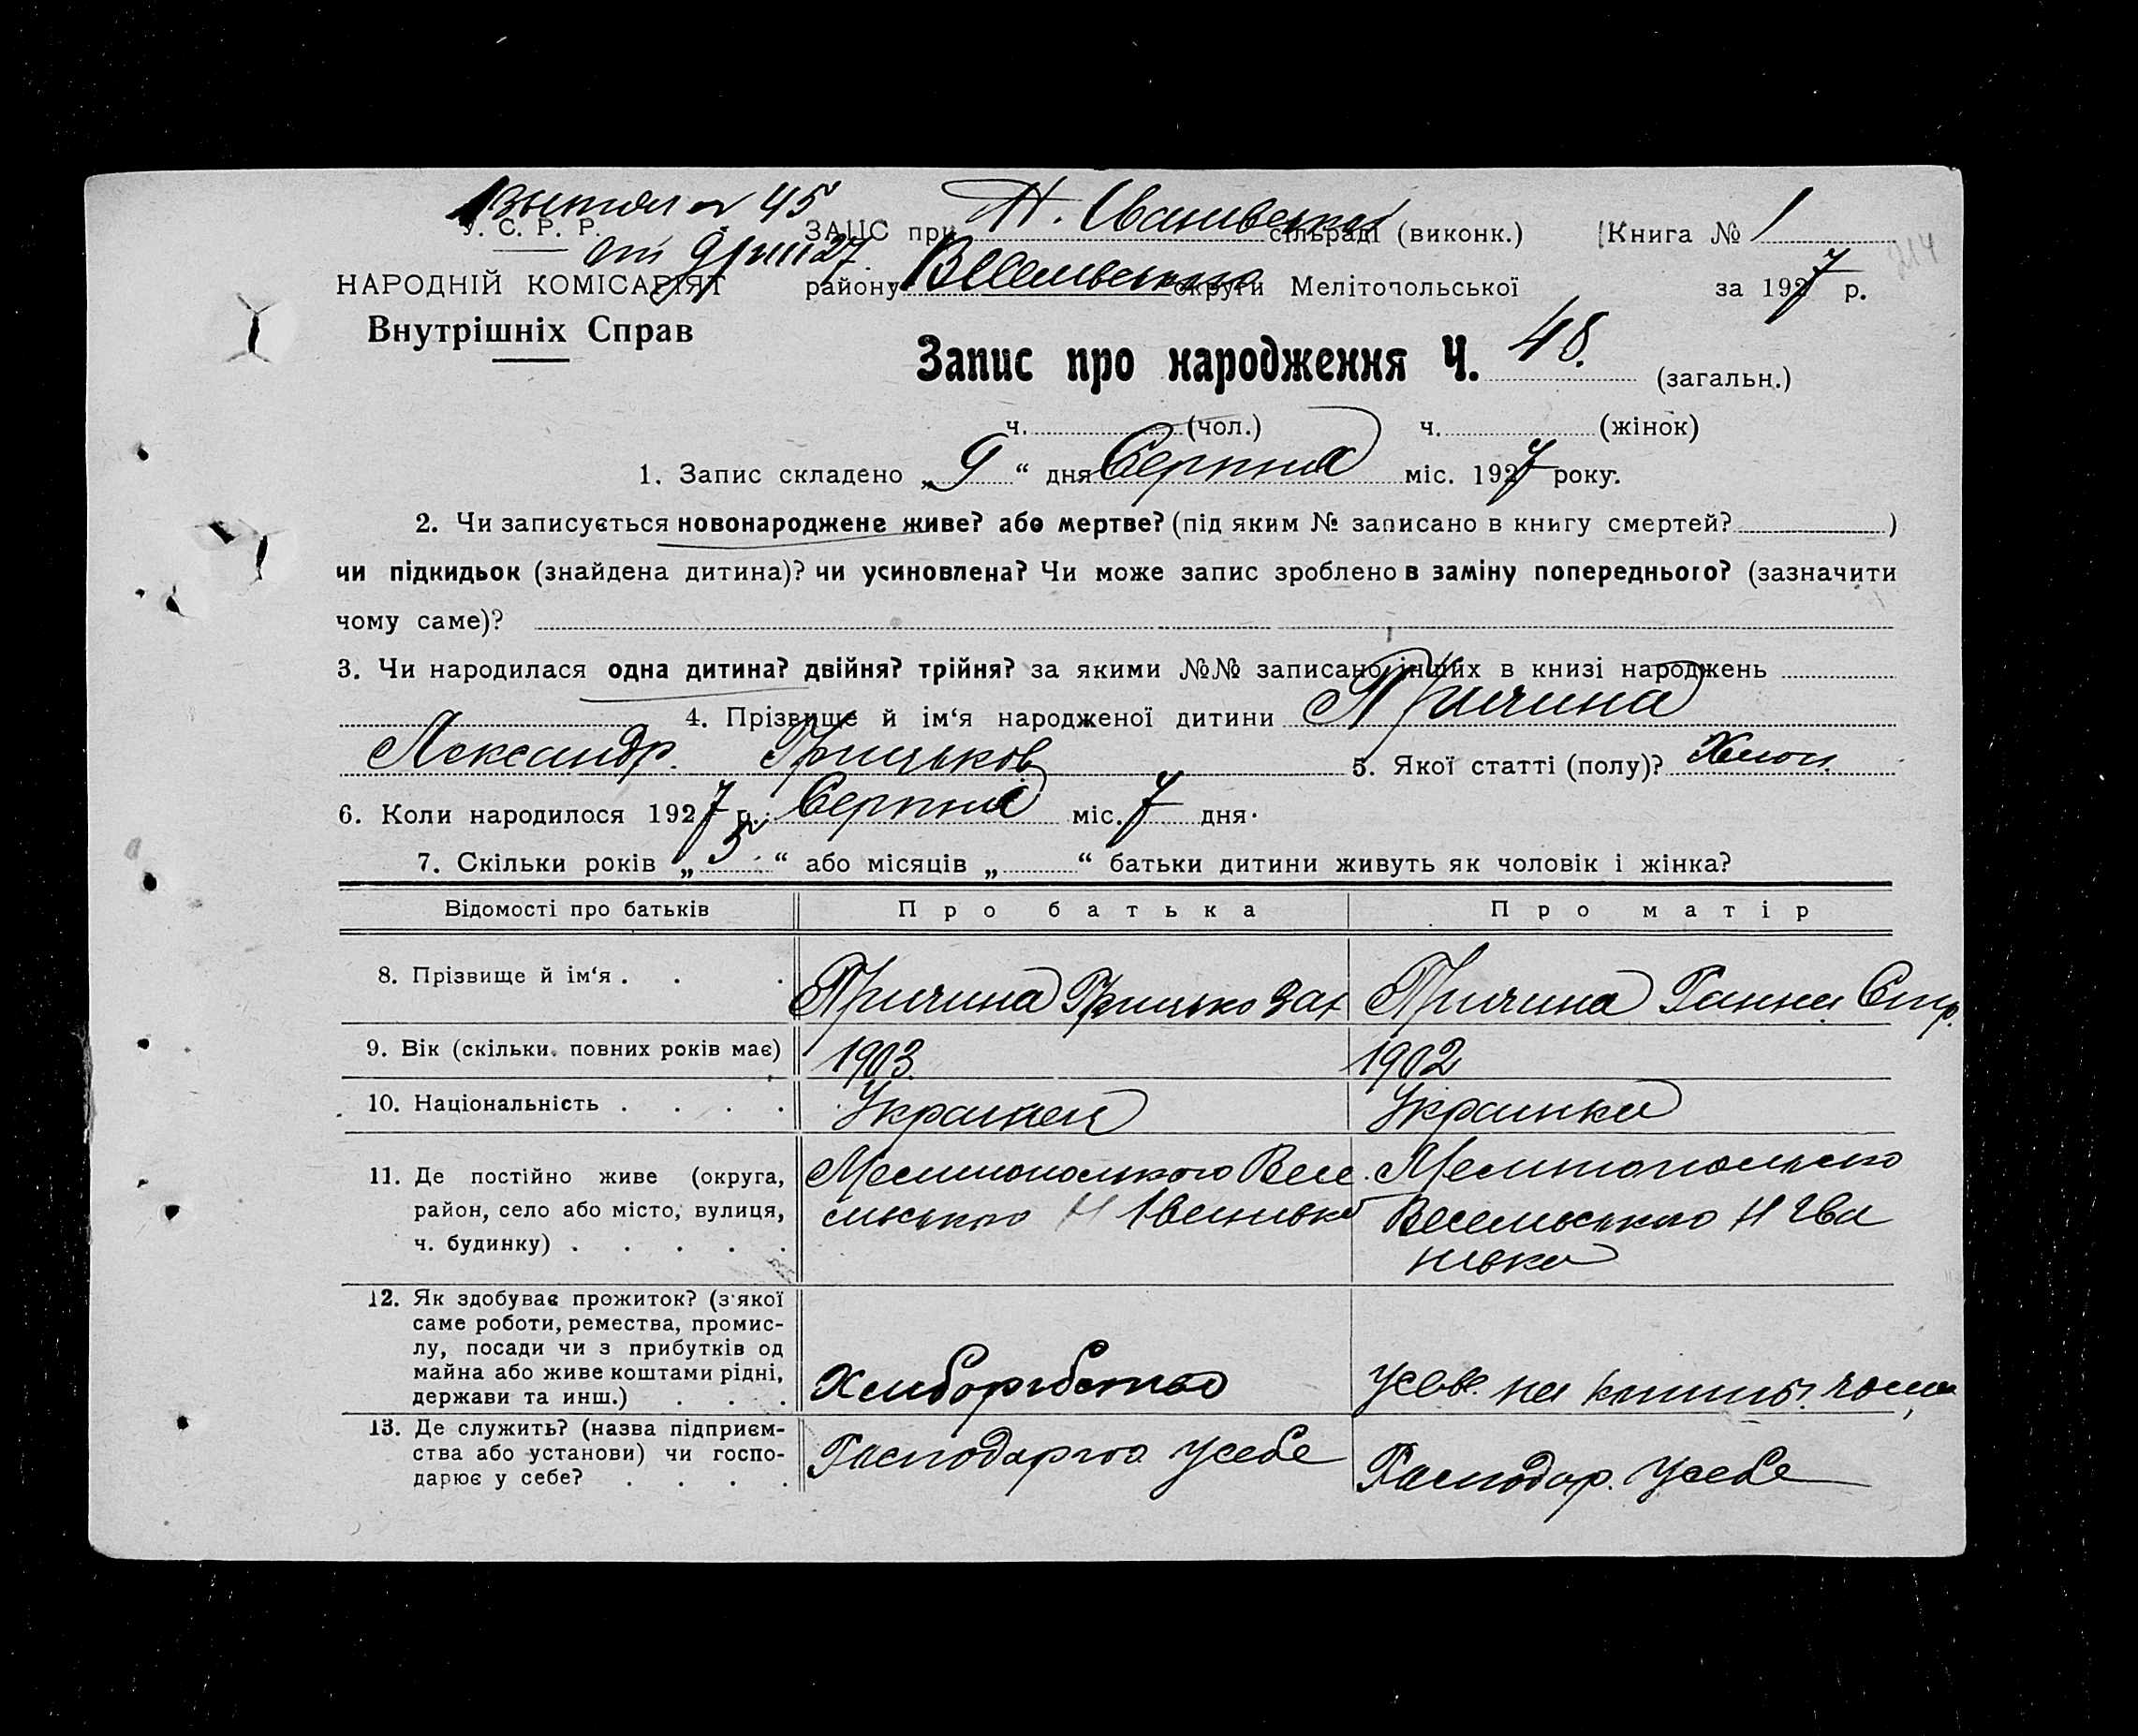 Выписан № 45
У. С. Р. Р.
от 9/VIII 27.
ЗАЦС при Н. Іванівської сільраді (виконк.) Книга № 1
214
НАРОДНІЙ КОМІСАРІЯТ району Веселівського округи Мелітопольської за 1927 р.
Внутрішніх Справ
Запис про народження Ч. 48. (загальн.)
ч. (чол.) ч. (жінок)
1. Запис складено „9“ дня Серпня міс. 1927 року.
2. Чи записується новонароджене живе? або мертве? (під яким № записано в книгу смертей? )
чи підкидьок (знайдена дитина)? чи усиновлена? Чи може запис зроблено в заміну попереднього? (зазначити
чому саме)?
3. Чи народилася одна дитина? двійня? трійня? за якими №№ записано інших в книзі народжень
4. Прізвище й ім‘я народженої дитини Причина
Александр. Грицьков 5. Якої статті (полу)? Хлоп.
6. Коли народилося 1927 р. Серпня міс. 7 дня.
7. Скільки років „5“ або місяців „ “ батьки дитини живуть як чоловік і жінка?
Відомості про батьків Про батька Про матір
8. Прізвище й ім‘я . . . Причина Грицько Зах Причина Ганна Спир.
9. Вік (скільки повних років має) 1903 1902
10. Національність . . . . Украинец Украинка
11. Де постійно живе (округа, Мелитопольского Весе Мелитопольско
район, село або місто, вулиця, Н Іванивка Веселоського Н Ива
ч. будинку) . . . . . нивка
12. Як здобуває прожиток? (з якої
саме роботи, ремества, промис-
лу, посади чи з прибутків од
майна або живе коштами рідні,
держави та инш.) . . . Хлиборобство на
13. Де служить? (назва підприєм-
ства або установи) чи госпо- Господарює усебе Господар. усебе
дарює у себе? . . . .